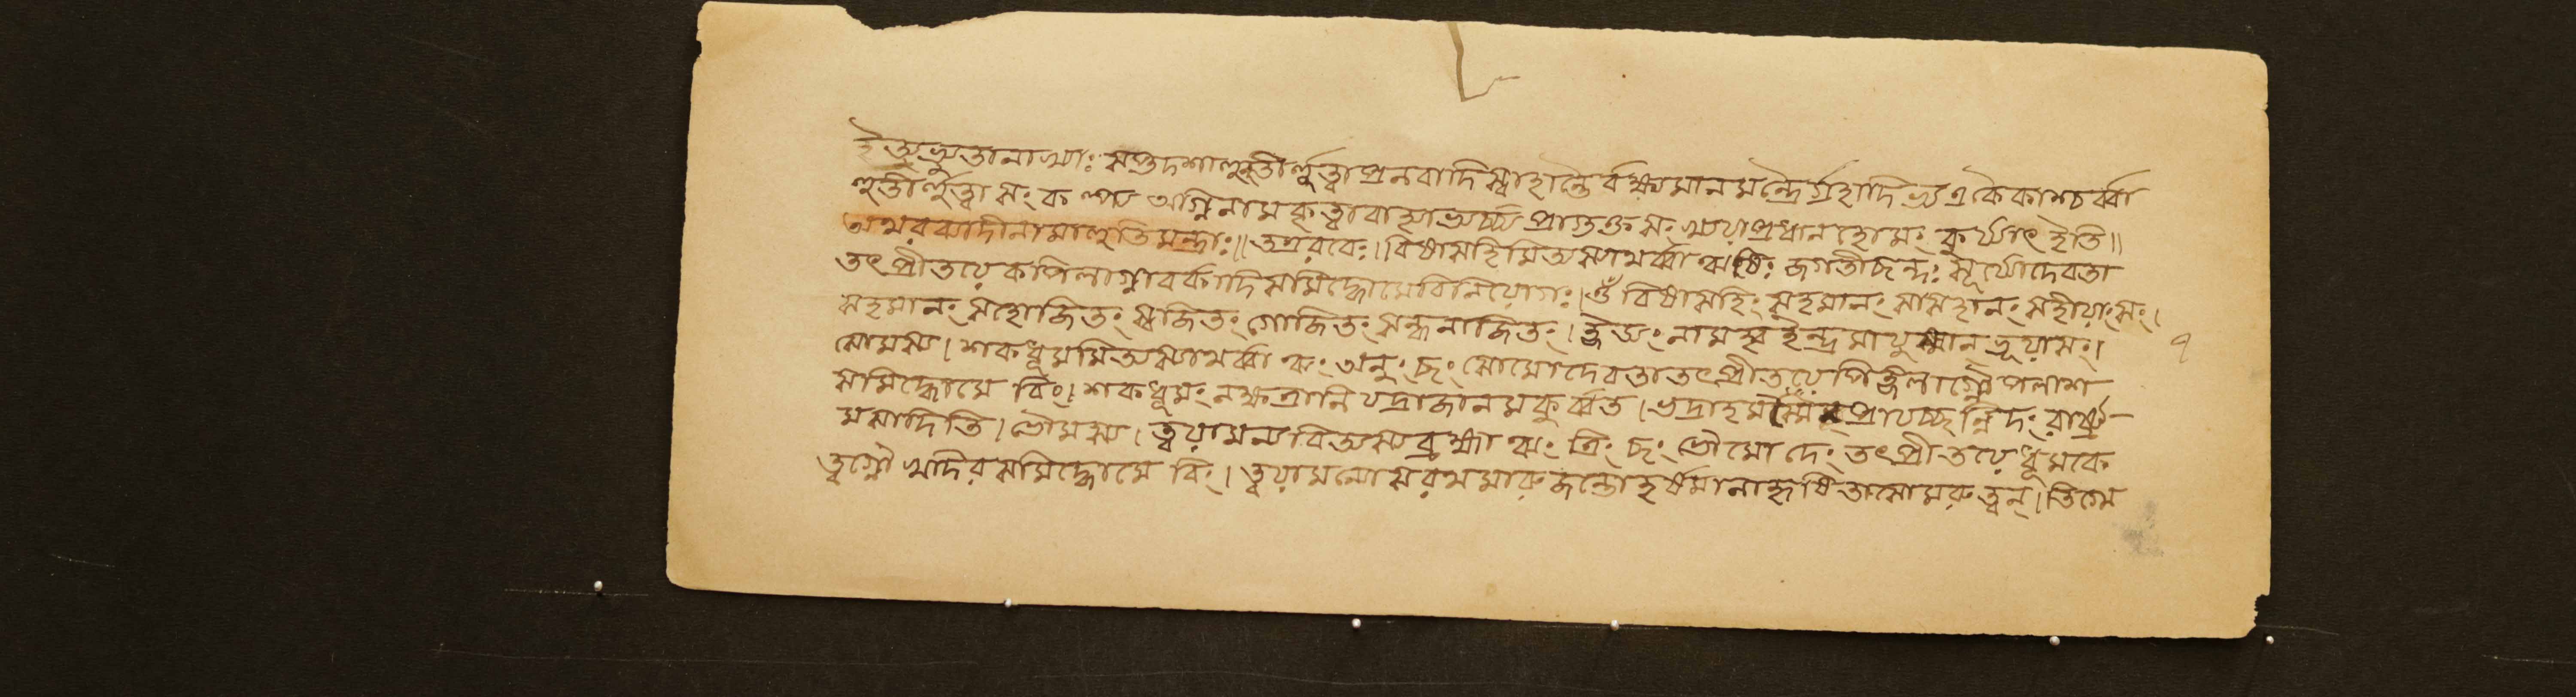 ইত্যদ্ভুতানাথ্যাঃ সপ্তদশাহুতীর্হুত্বাপ্রনবাদিস্বাহান্তৈর্বক্ষ্যমানমন্ত্রৈর্গ্রহাদিভ্য একৈকাশ্চর্ব্বা
হুতীর্হুত্বা সংকল্প্য অগ্নিনামকৃত্বাবাহ্যাভ্যর্চ্চ্য প্রাগুক্তসংখ্যয়াপ্রধানহোমং কুর্য্যাৎ ইতি॥
অথরব্যাদীনামাহুতিমন্ত্রাঃ॥ তত্ররবেঃ। বিষাসহিমিত্যস্যাথর্ব্বা ঋষিঃ জগতীচ্ছন্দঃ সূর্য্যোদেবতা
তৎপ্রীতয়ে কপিলাগ্নাবর্ক্কাদিসমিদ্ধোমেবিনিয়োগঃ। ওঁ বিষাসহিং সহমানং সাসহানং সহীয়াংসং।
সহমানং সহোজিতং স্বজিতং গোজিতং সন্ধনাজিতং। ঈড্যং নামহ্ব ইন্দ্রমাযুষ্মান্ ভূয়াসং।
সোমস্য। শকধূমমিত্যস্যাথর্ব্বা ঋঃ অনুঃ ছঃ সোমোদেবতাতৎপ্রীতয়ে পিঙ্গলাগ্নৌ পলাশ
সমিদ্ধোমে বিঃ। শকধূমং নক্ষত্রানি যদ্রাজানমকুর্ব্বত। ভদ্রাহমস্মৈ প্রাযচ্ছন্নিদং রাষ্ট্র-
মসাদিতি। ভৌমস্য। ত্বয়ামন্যবিত্যস্যব্রহ্মা ঋঃ ত্রিঃ ছঃ ভৌমো দেঃ তৎপ্রীতয়ে ধূমকে
ত্বগ্নৌ খদিরসমিদ্ধোমে বিঃ। ত্বয়ামন্যোসরথমারুজন্তোহর্ষমানাহৃষিতাসোমরুত্বন্। তিগ্মে
৭